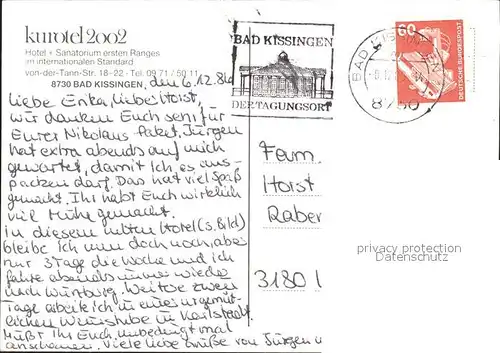 kurotel 2002
Hotel + Sanatorium ersten Ranges
im internationalen Standard
von-der-Tann-Str. 18-22 - Tel. 09 71 / 50 11
8730 BAD KISSINGEN, den 6.12.84
Liebe Erika, lieber Horst,
wir danken Euch sehr für
Eurer Nikolaus-Paket. Jürgen
hat extra abends auf mich
gewartet, damit ich es aus-
packen darf. Das hat viel Spaß
gemacht. Ihr habt Euch wirklich
viel Mühe gemacht.
In diesem tollen Hotel (s. Bild)
bleibe ich nun doch noch, aber
nur 3 Tage die Woche und ich
fahre abends immer wieder
nach Würzburg. Weitere zwei
Tage arbeite ich in einer urgemüt-
lichen Weinstube in Karlstadt.
Müßt Ihr Euch unbedingt mal
anschauen. Viele liebe Grüße von Jürgen u
BAD KISSINGEN
DER TAGUNGSORT
BAD KISSINGEN
8730
60
DEUTSCHE BUNDESPOST
Fam.
Horst
Raber
3180 1
privacy protection
Datenschutz